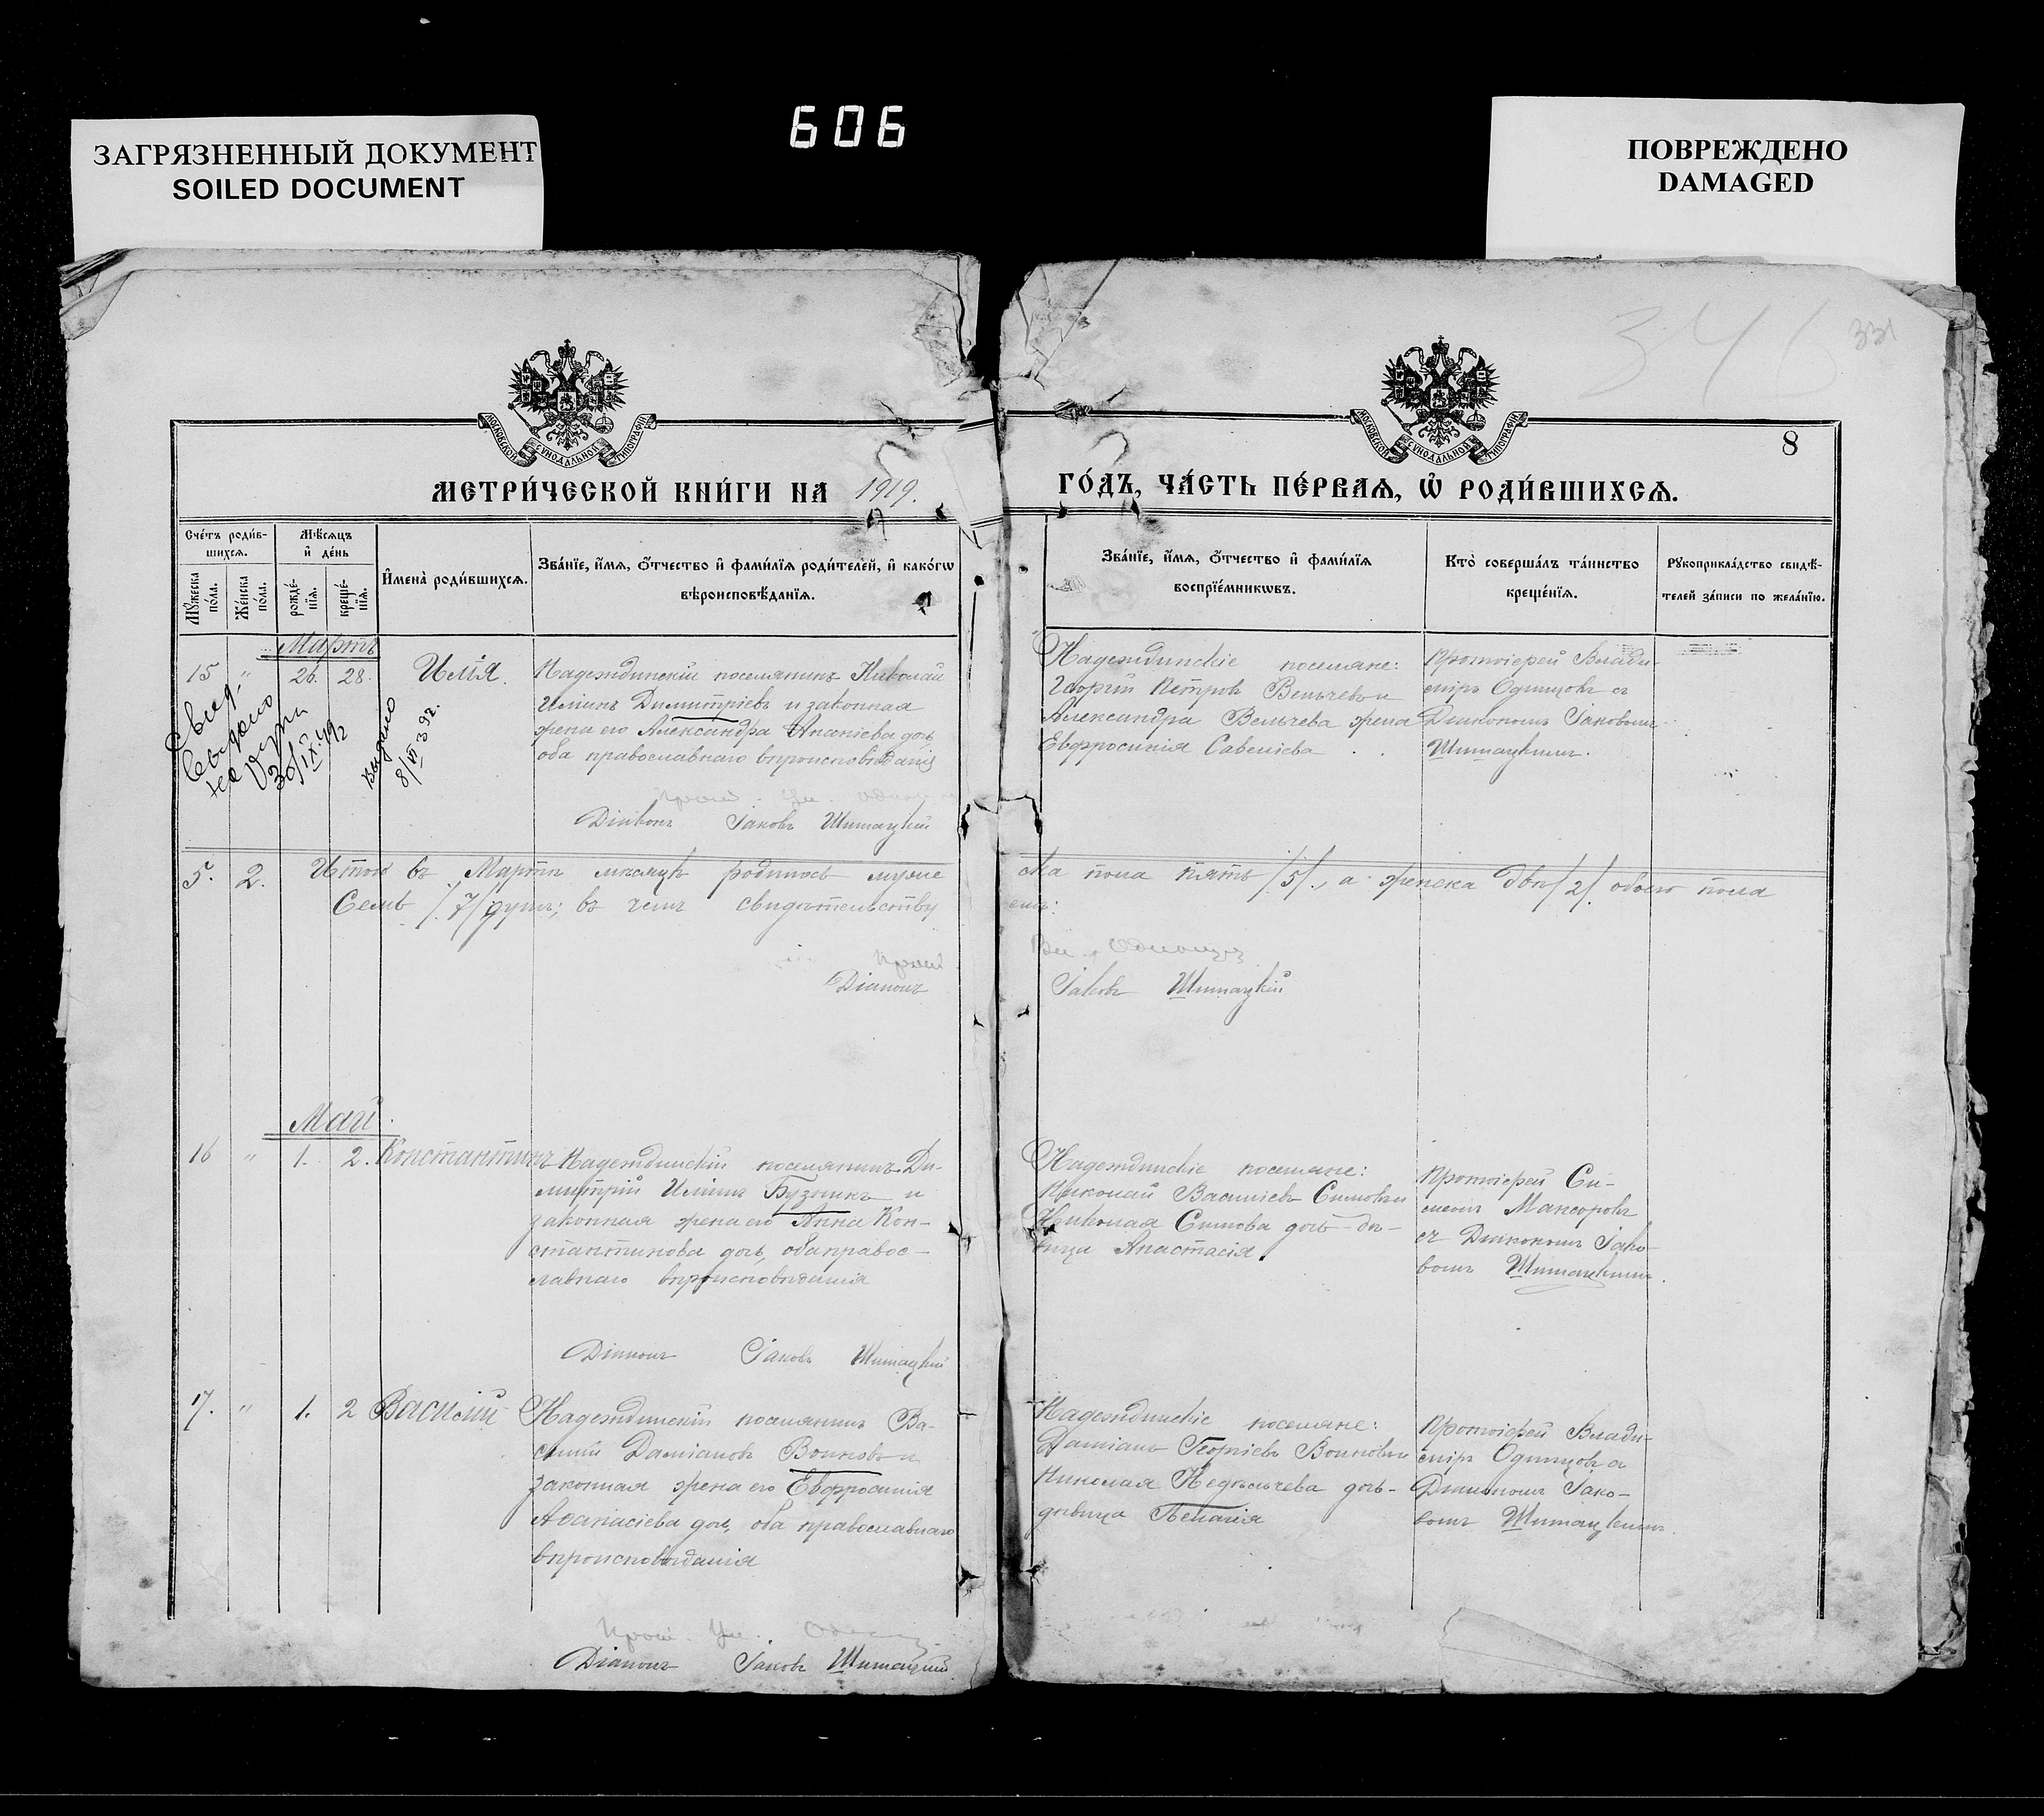 606
ЗАГРЯЗНЕННЫЙ ДОКУМЕНТ
SOILED DOCUMENT
ПОВРЕЖДЕНО
DAMAGED
341
331
8
МОСКОВСКОЙ СѴНОДАЛЬНОЙ ТИПОГРАФІИ
МОСКОВСКОЙ СѴНОДАЛЬНОЙ ТИПОГРАФІИ
МЕТРИ́ЧЕСКОЙ КНИ́ГИ НА 1919. ГО́ДЪ, ЧА́СТЬ ПЕ́РВАѦ, Ѡ РОДИ́ВШИХСѦ.
Сче́тъ роди́в-
шихсѧ.
Мꙋ́жеска по́ла.
Же́нска по́ла.
Мѣ́сѧцъ
и҆ де́нь
рожде́-
нїѧ.
креще́-
нїѧ.
И҆мена̀ роди́вшихсѧ.
Зва́нїе, и҆́мѧ, ѻ҆́тчество и҆ фами́лїѧ роди́телей, и҆ како́гѡ
вѣроисповѣ́данїѧ.
Зва́нїе, и҆́мѧ, ѻ҆́тчество и҆ фами́лїѧ
воспрїе́мникѡвъ.
Кто̀ соверша́лъ та́инство
креще́нїѧ.
Рꙋкоприкла́дство свидѣ́-
телей за́писи по жела́нїю.
Мартъ
15 " 26. 28. Илія.
Надеждинскій поселянинъ Николай
Иліинъ Димитріевъ и законная
жена его Александра Ананіева дочь
оба православнаго вѣроисповѣданія
Діаконъ Іаковъ Шимацкій
Надеждинскіе поселяне:
Георгій Петровъ Вельчевъ и
Александра Вельчева жена
Евфросинія Савеліева
Протоіерей Влади-
міръ Одинцовъ съ
Діакономъ Іаковомъ
Шимацкимъ.
30/IX.49
Выдано
8/VI 39г.
5. 2. Итого въ Мартѣ мѣсяцѣ родилось муже ска пола пять /5/., а женска двѣ /2/. обоего пола
Семь /7/ душъ; въ чемъ свидѣтельству емъ:
Прот. Вл. Одинцовъ
Діаконъ Іаковъ Шимацкій
Май.
16 " 1. 2. Константинъ
Надеждинскій поселянинъ Ди-
митрій Иліинъ Бузникъ и
законная жена его Анна Кон-
стантинова дочь, оба правос-
лавнаго вѣроисповѣданія
Діаконъ Іаковъ Шимацкій
Надеждинскіе поселяне:
Николай Василіевъ Симовъ и
Николая Симова дочь дѣ-
вица Анастасія.
Протоіерей Си-
меонъ Мансоровъ
съ Діакономъ Іако-
вомъ Шимацкимъ.
17. " 1. 2 Василій
Надеждинскій поселянинъ Ва-
силій Даміановъ Волковъ и
законная жена его Евфросинія
Аѳанасіева дочь, оба православнаго
вѣроисповѣданія
Прот. Вл.
Діаконъ Іаковъ Шимацкій.
Надеждинскіе поселяне:
Даміанъ Георгіевъ Волковъ и
Николая Недѣльчева дочь-
дѣвица Пелагія
Протоіерей Влади-
міръ Одинцовъ съ
Діакономъ Іако-
вомъ Шимацкимъ.